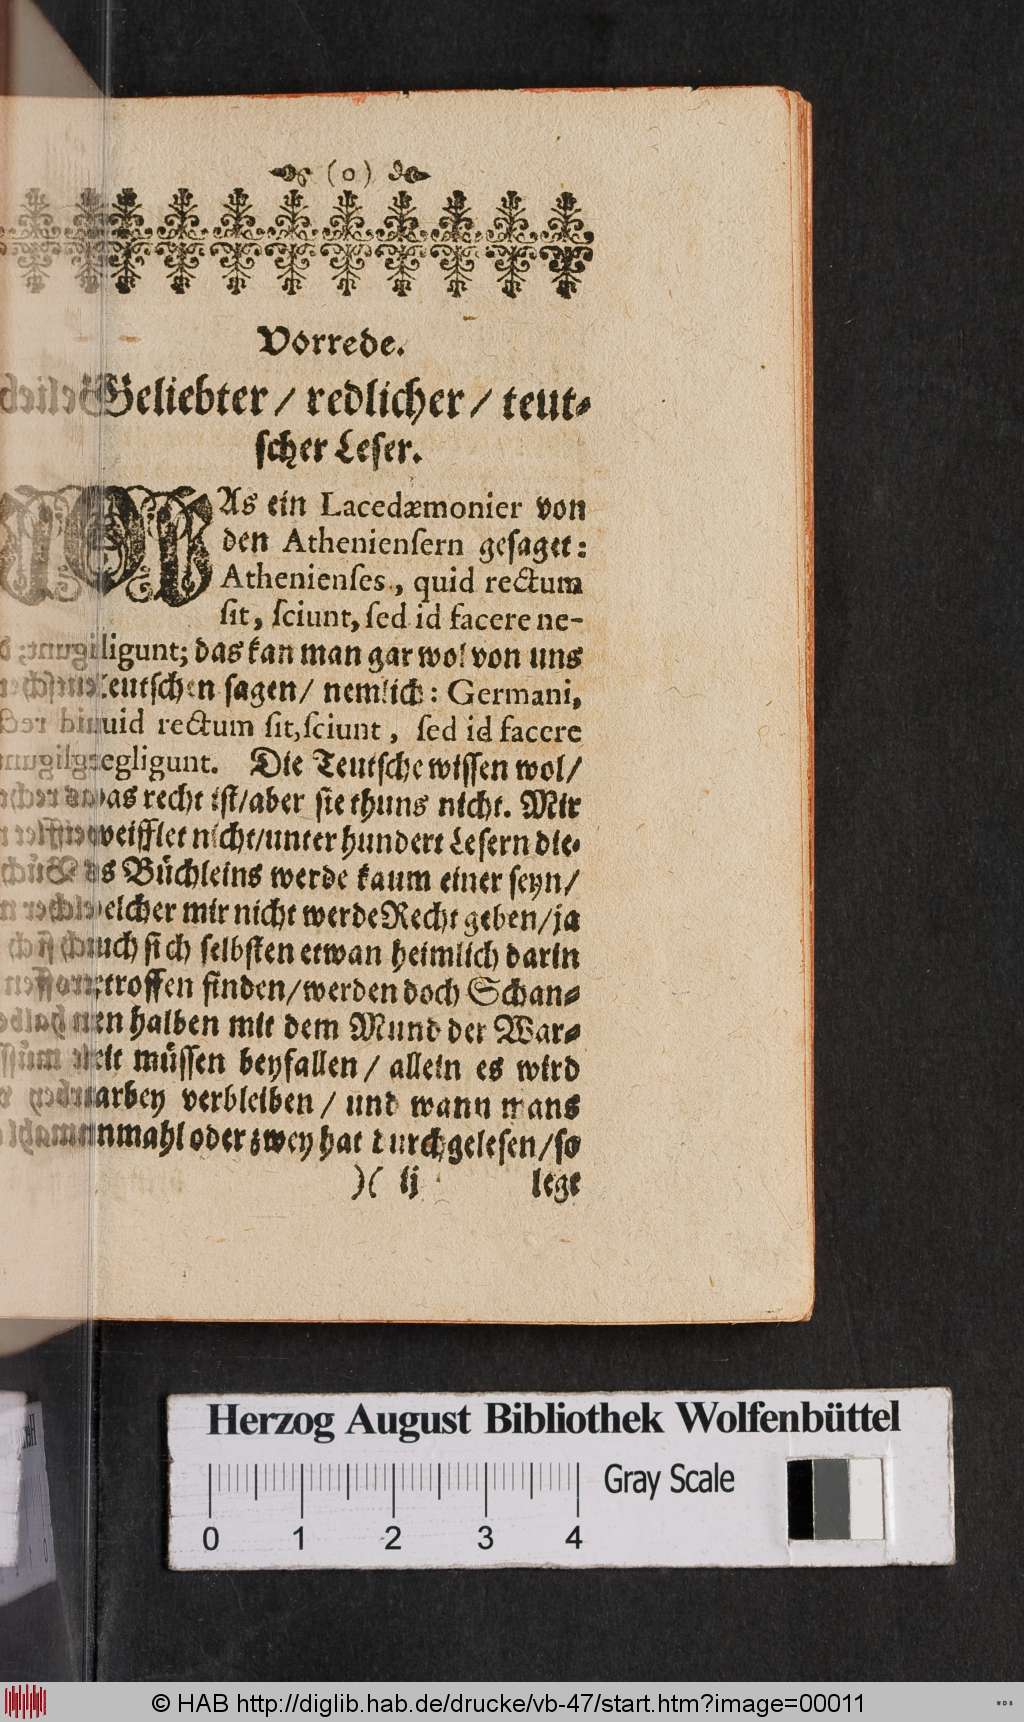 (o)
Vorrede.
Geliebter / redlicher / teut-
scher Leser.
WAs ein Lacedæmonier von
den Athenienſern geſaget:
Athenienſes, quid rectum
ſit, ſciunt, ſed id facere ne-
ligunt; das kan man gar wol von uns
Teutſchen ſagen / nemlich: Germani,
quid rectum ſit, ſciunt, ſed id facere
negligunt. Die Teutſche wiſſen wol /
was recht iſt / aber ſie thuns nicht. Mir
zweifflet nicht / unter hundert Leſern die-
ſes Büchleins werde kaum einer ſeyn /
welcher mir nicht werde Recht geben / ja
auch ſich ſelbſten etwan heimlich darin
getroffen finden / werden doch Schan-
den halben mit dem Mund der War-
heit müſſen beyfallen / allein es wird
darbey verbleiben / und wann mans
einmahl oder zwey hat durchgeleſen / ſo
)( ij lege
Herzog August Bibliothek Wolfenbüttel
0 1 2 3 4 Gray Scale
© HAB http://diglib.hab.de/drucke/vb-47/start.htm?image=00011